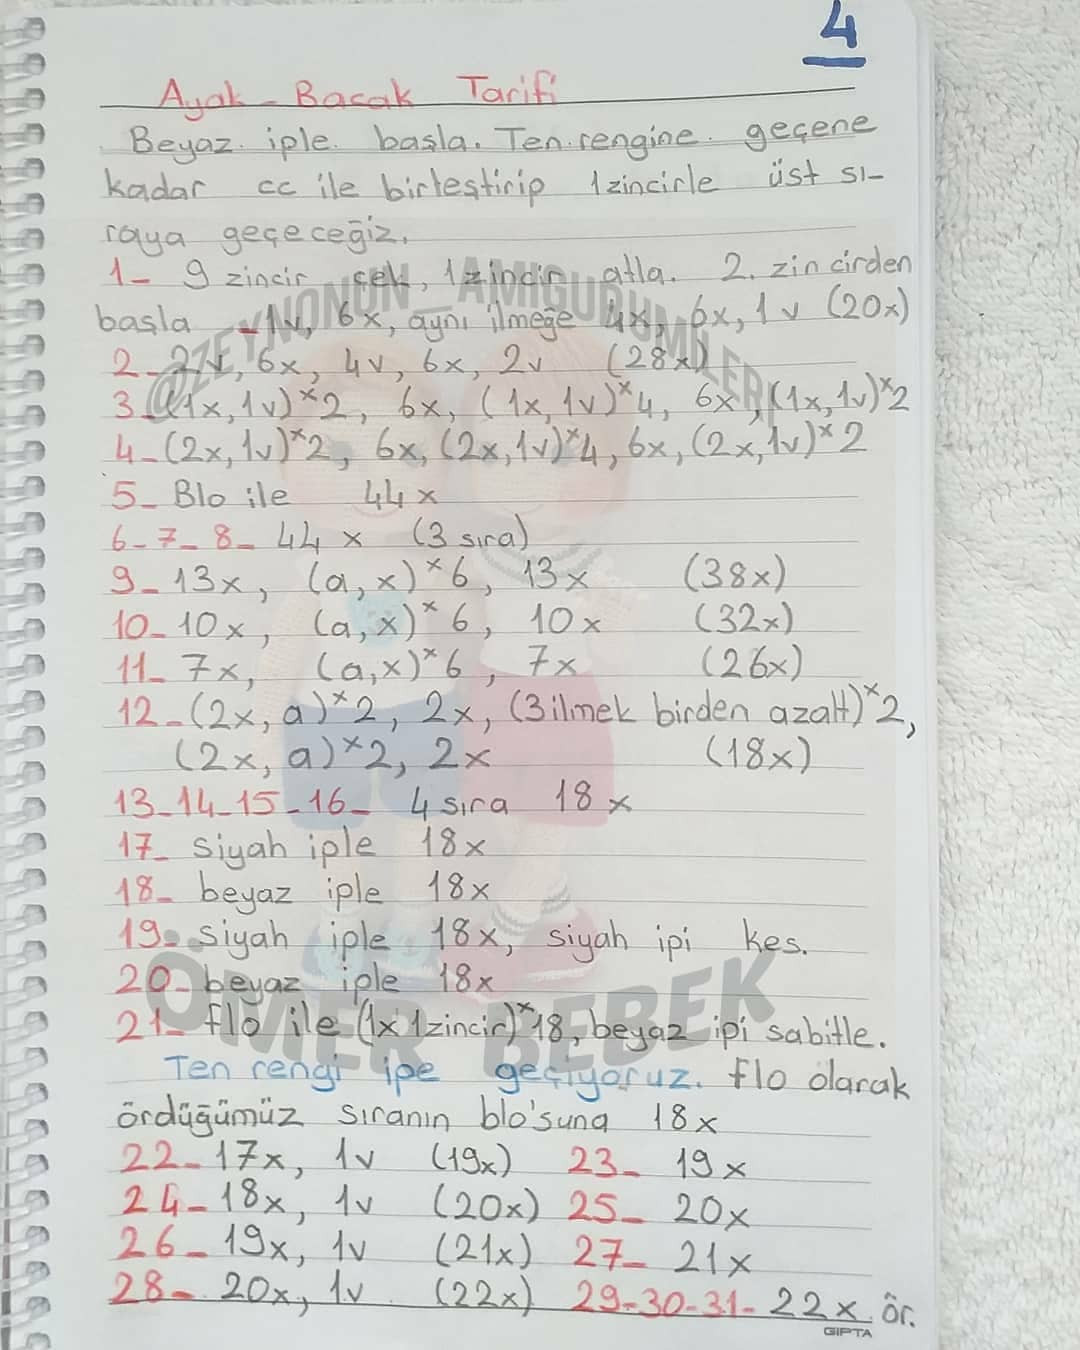 4
Ayak - Bacak Tarifi
Beyaz iple başla. Ten rengine geçene
kadar cc ile birleştirip 1zincirle üst sı-
raya geçeceğiz.
1- 9 zincir çek, 1zincir atla. 2. zincirden
başla - 1v, 6x, aynı ilmeğe 4x, 6x, 1v (20x)
2- 2v, 6x, 4v, 6x, 2v (28x)
3- (1x, 1v)*2, 6x, (1x, 1v)*4, 6x, (1x, 1v)*2
4- (2x, 1v)*2, 6x, (2x, 1v)*4, 6x, (2x, 1v)*2
5- Blo ile 44x
6-7-8- 44 x (3 sıra)
9- 13x, (a, x)*6, 13x (38x)
10- 10x, (a, x)*6, 10x (32x)
11- 7x, (a,x)*6, 7x (26x)
12- (2x, a)*2, 2x, (3ilmek birden azalt)*2,
(2x, a)*2, 2x (18x)
13-14-15-16- 4 sıra 18x
17- siyah iple 18x
18- beyaz iple 18x
19- siyah iple 18x, siyah ipi kes.
20- beyaz iple 18x
21- flo ile (1x 1zincir)*18, beyaz ipi sabitle.
Ten rengi ipe geçiyoruz. flo olarak
ördüğümüz sıranın blo'suna 18x
22- 17x, 1v (19x) 23- 19x
24- 18x, 1v (20x) 25- 20x
26- 19x, 1v (21x) 27- 21x
28- 20x, 1v (22x) 29-30-31- 22x ör.
GIPTA
@ZEYNONUN_AMIGURUMILERI
ÖMER BEBEK